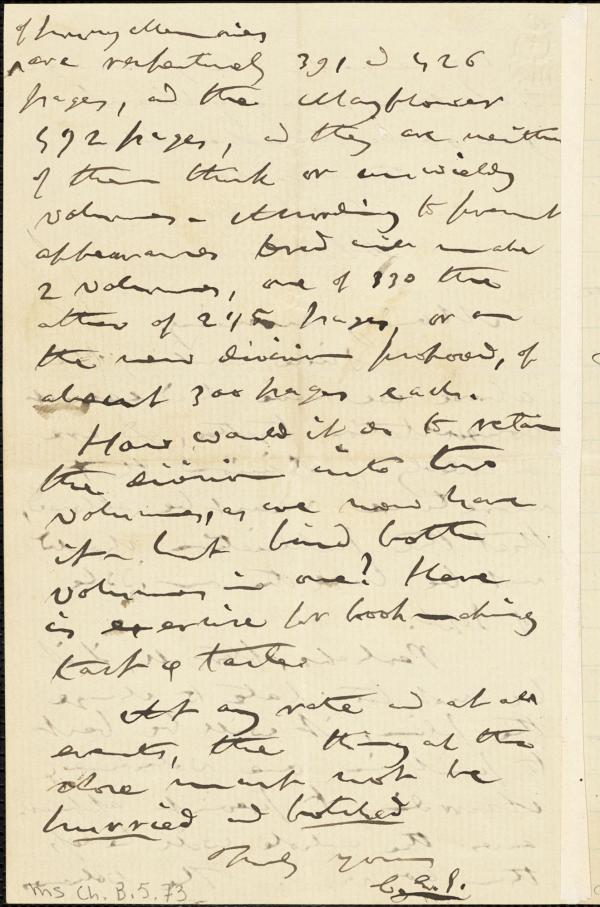 of Sunny Memories
are respectively 391 & 426
pages, & the Mayflower
592 pages, & they are neither
of them thick or unwieldy
volumes - According to present
appearances Dred will make
2 volumes, one of 330 the
other of 275 pages, or on
the new division proposed, of
about 300 pages each.
How would it do to retain
the division into two
volumes, as we now have
it - but bind both
volumes in one? Here
is exercise for bookmaking
tact & taste.
At any rate & at all
events, the thing at the
store must not be
hurried & botched
Truly yours
ms Ch. B.5.73